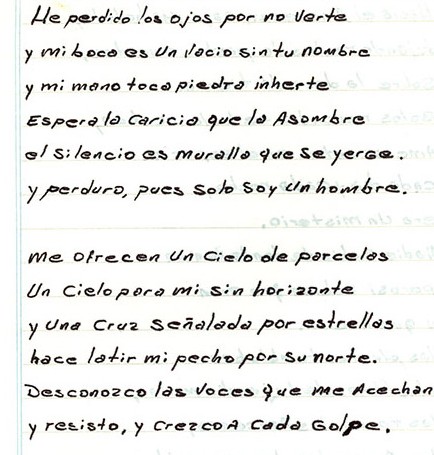 He perdido los ojos por no verte
y mi boca es un vacio sin tu nombre
y mi mano toca piedra inherte
Espera la caricia que la Asombre
el silencio es muralla que se yerge.
y perduro, pues solo soy un hombre.
Me ofrecen un cielo de parcelas
Un cielo para mi sin horizonte
y una cruz señalada por estrellas
hace latir mi pecho por su norte.
Desconozco las voces que me Acechan
y resisto, y crezco A cada Golpe.